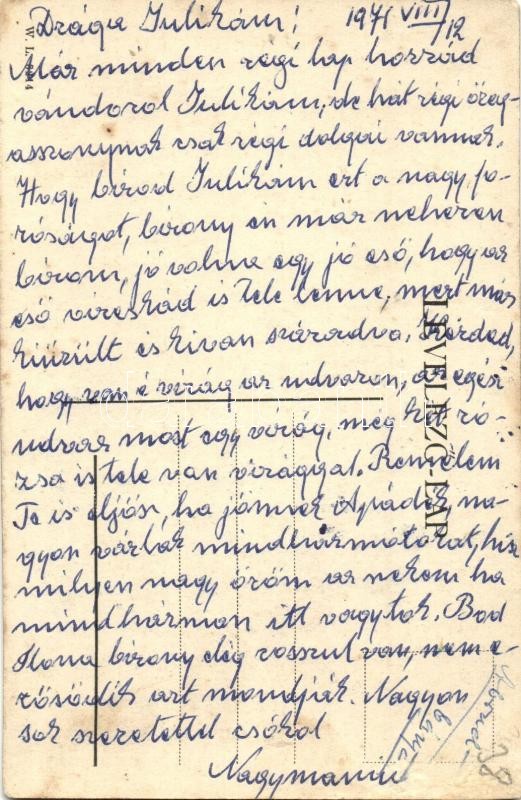 Drága Julikám! 1971 VIII/12
Már minden régi lap hozzád
vándorol Julikám, de hát régi öreg-
asszonynak csak régi dolgai vannak.
Hogy birod Julikám ezt a nagy fo-
róságot, bizony én már nehezen
birom, jó volna egy jó eső, hogy az
eső vizeskád is tele lenne, mert már
kiürült és ki van száradva. Kérded,
hogy van é virág az udvaron, az egész
udvar most egy virág, még két ró-
zsa is tele van virággal. Remélem
Te is eljősz ha jönnek Apádék, na-
gyon várlak mindhármótokat, hisz
milyen nagy öröm az nekem ha
mindhárman itt vagytok. Bod
Ilona bizony elég rosszul van, nem e-
rősödik azt mondják. Nagyon
sok szeretettel csókol
Nagymami
LEVELEZŐ-LAP
W. L.